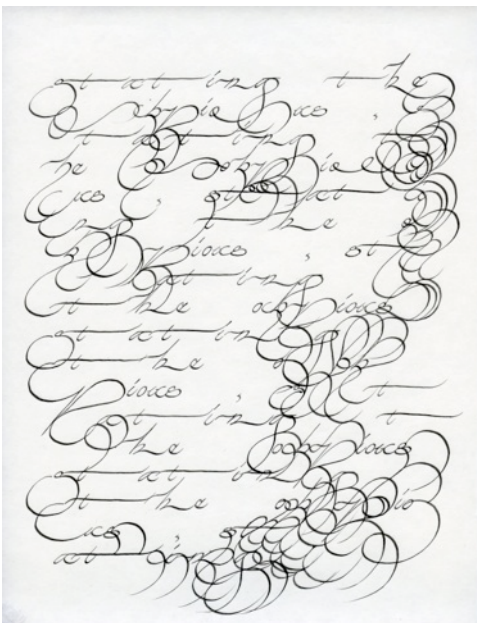 stating the
obvious, s
tating t
he obvio
us, stati
ng the o
bvious, st
ating
the obvious
stating
the ob
vious, st
ating t
he obvious
stating
the obvio
us, st
ating